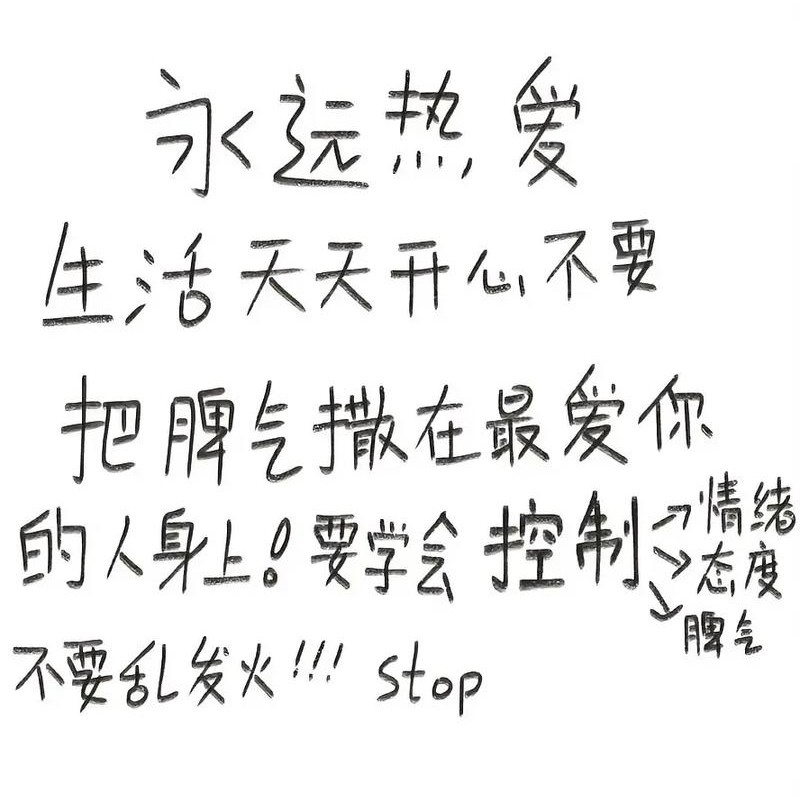 永远热爱
生活天天开心不要
把脾气撒在最爱你
的人身上!要学会控制→情绪
→态度
→脾气
不要乱发火!!! stop